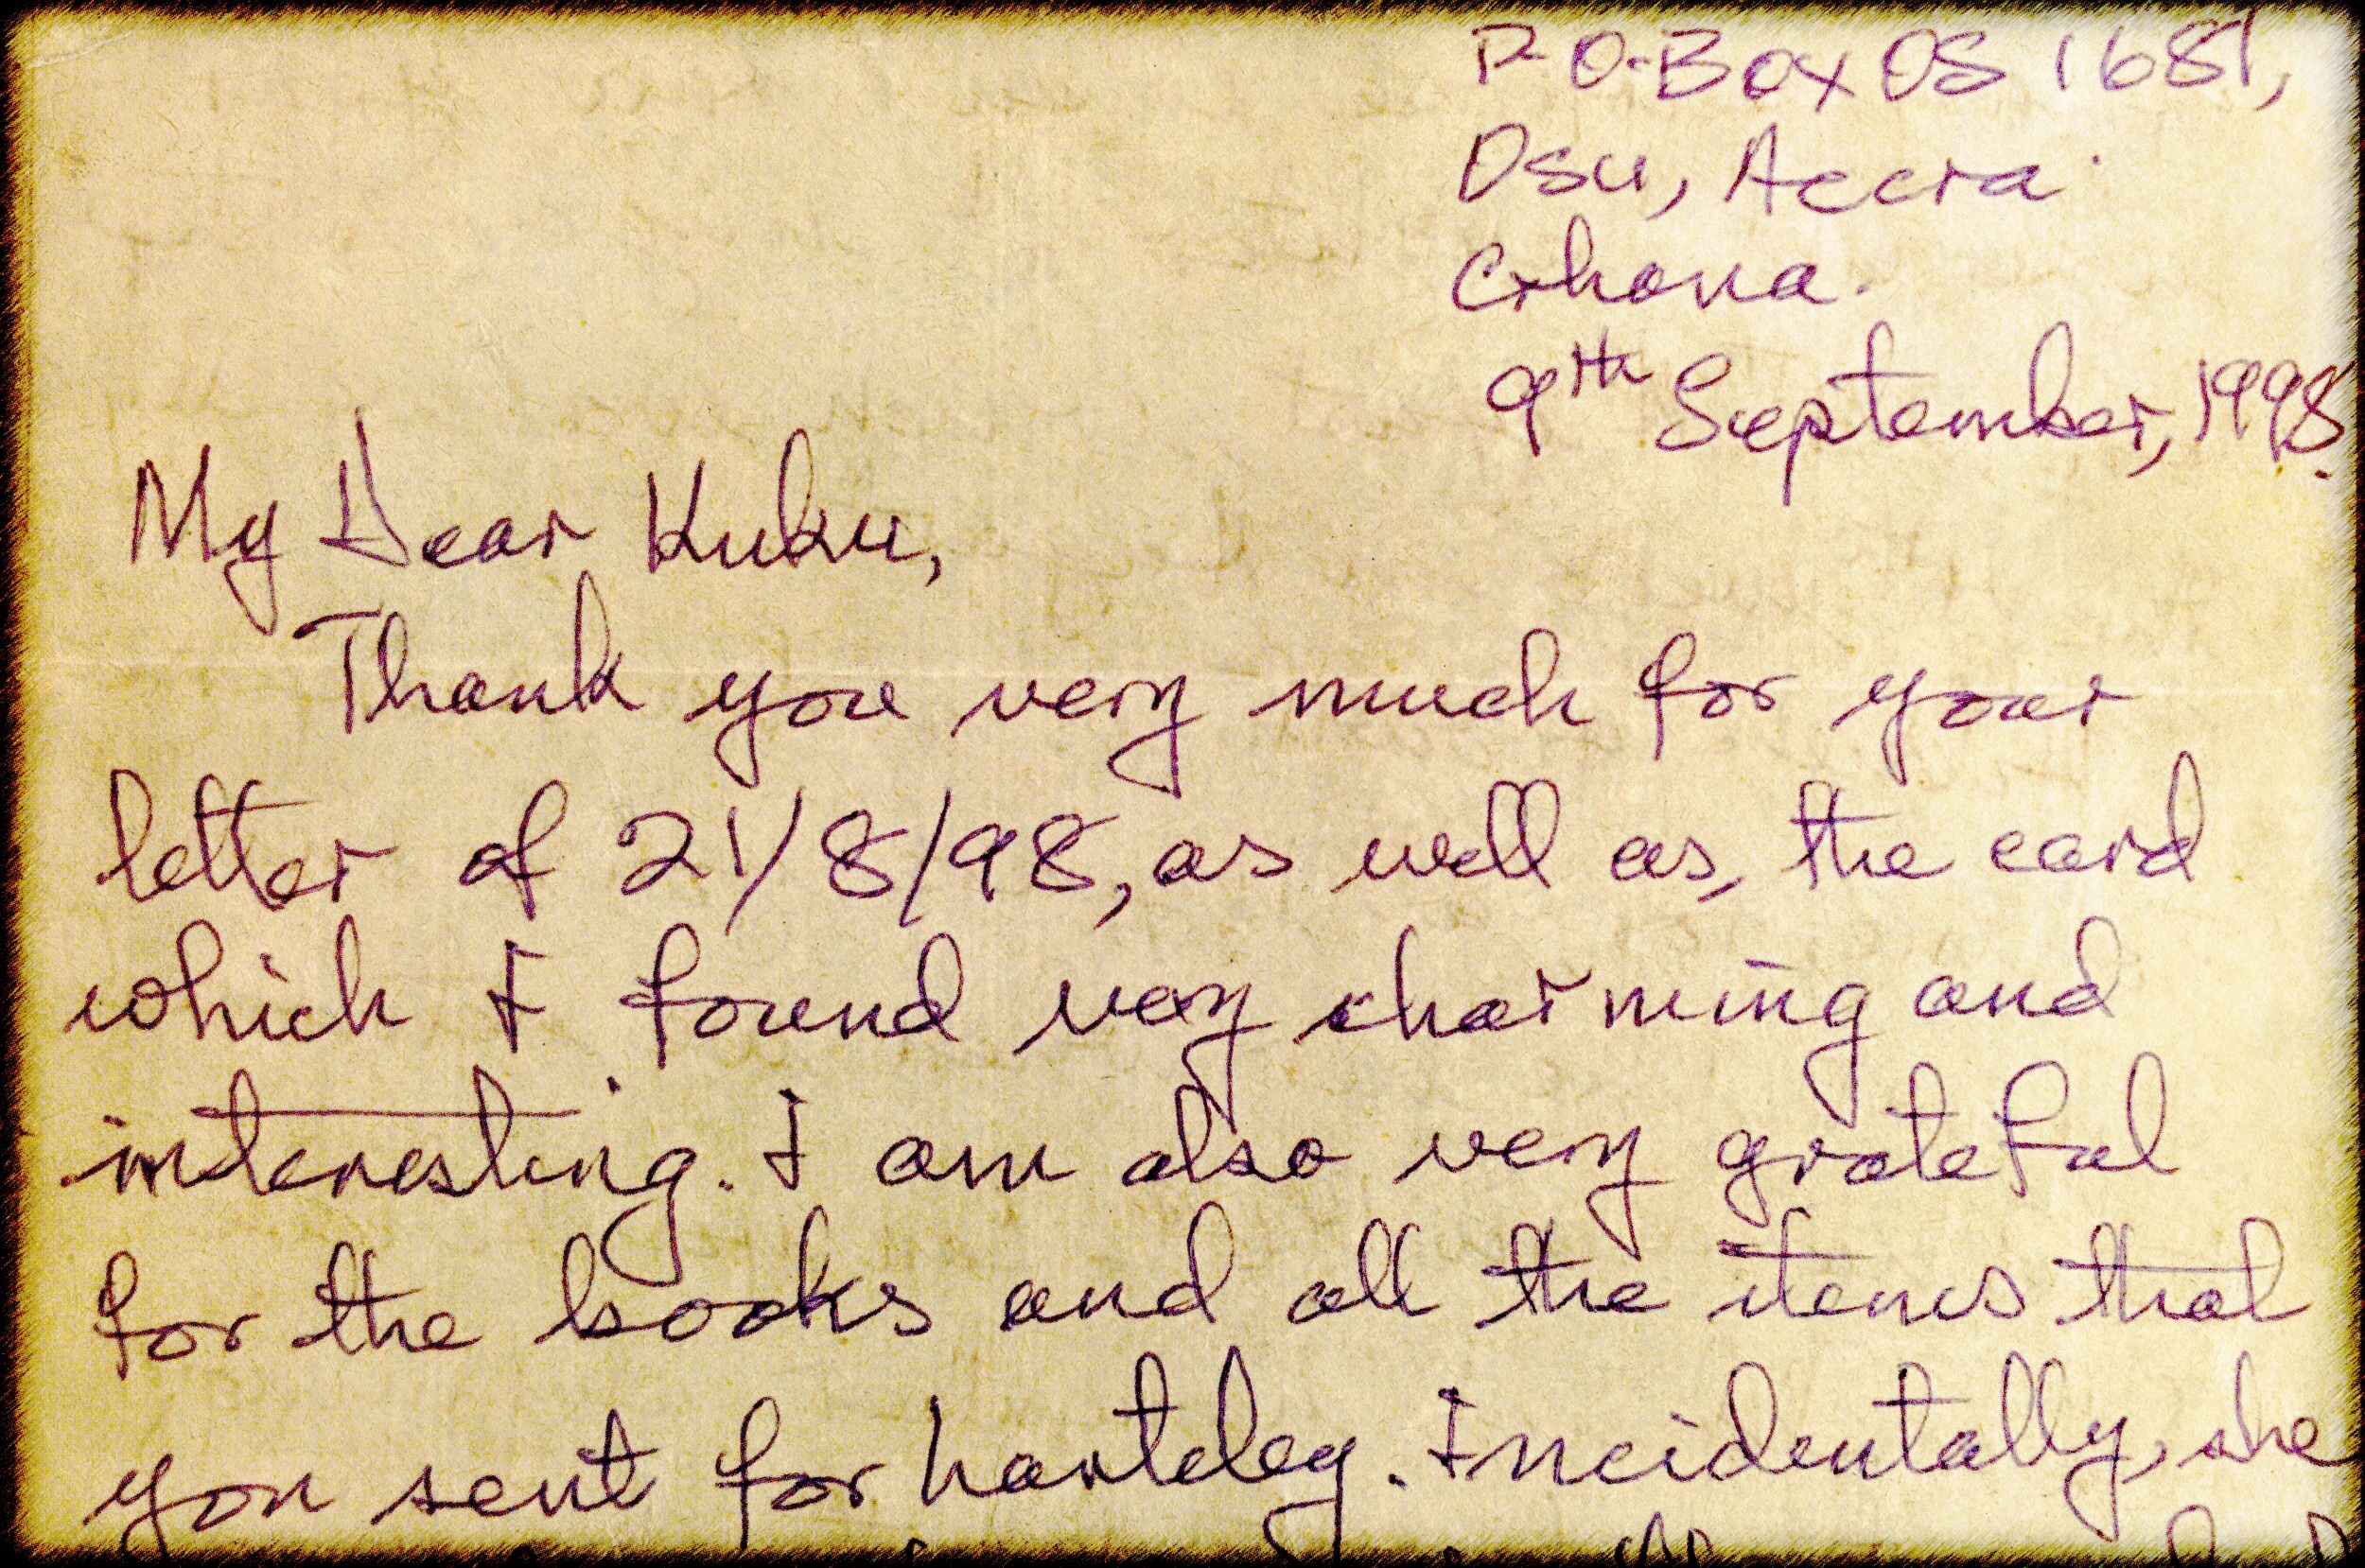 P.O. Box OS 1681,
Osu, Accra.
Ghana.
9th September, 1998.
My Dear Kuku,
Thank you very much for your
letter of 21/8/98, as well as, the card
which I found very charming and
interesting. I am also very grateful
for the books and all the items that
you sent for . Incidentally, she